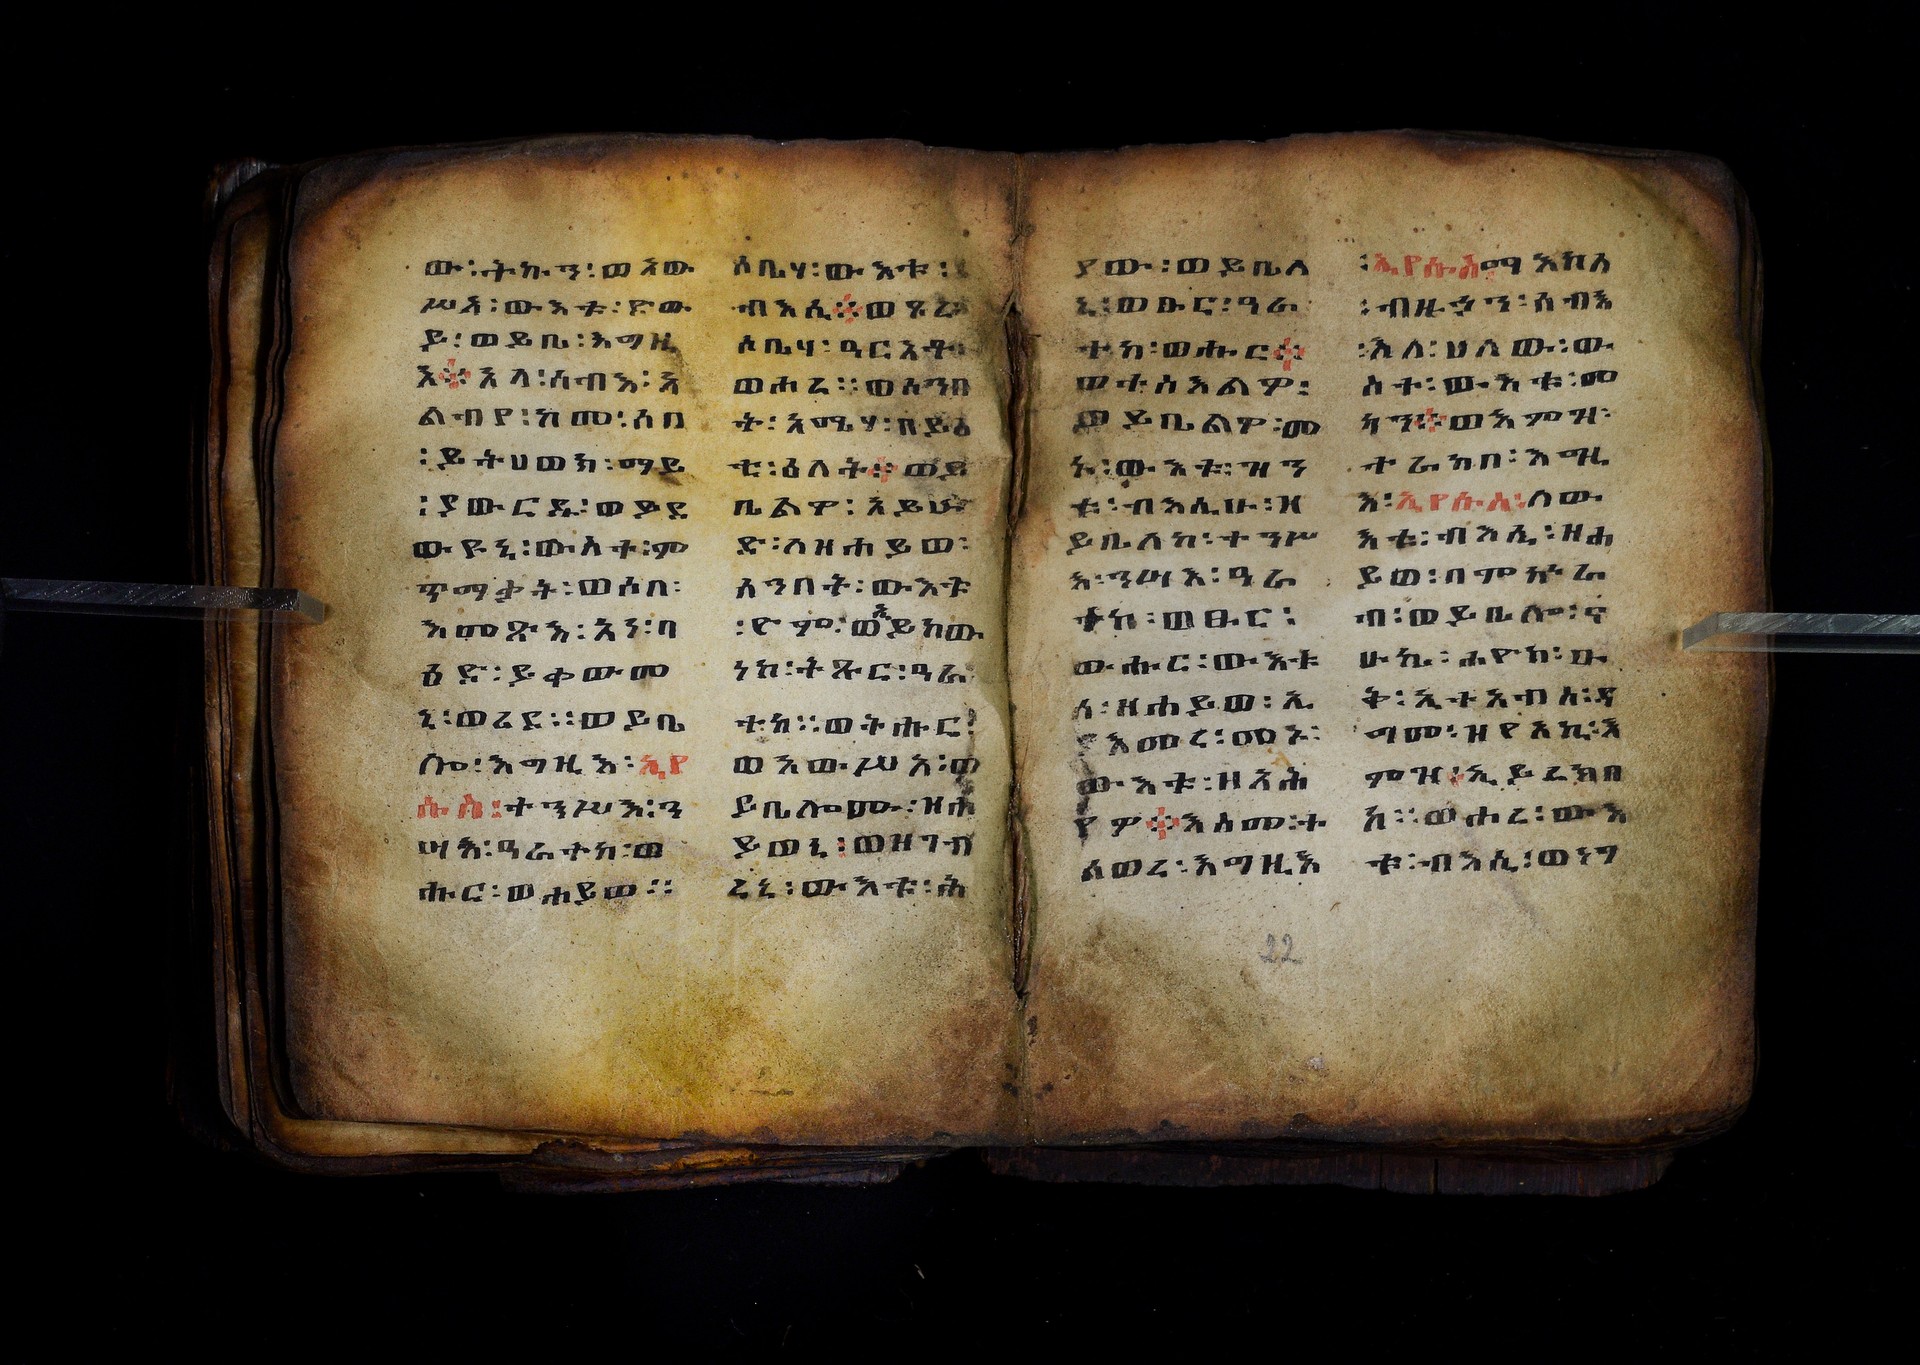 ው፡ትኩን፡ወአው
ሥአ፡ውእቱ፡ድው
ይ፡ወይቤ፡እግዚ
እ፨አላ፡ሰብእ፡አ
ልብየ፡ከመ፡ሶበ
፡ይትሀወክ፡ማይ
፡ያውርዱ፡ወይደ
ውዩኒ፡ውስተ፡ም
ጥማቃት፡ወሶበ፡
እመጽእ፡አነ፡ባ
ዕድ፡ይቀውመ
ኒ፡ወረደ፡፡ወይቤ
ሎ፡እግዚእ፡ኢየ
ሱስ፡ተንሥእ፡ን
ሣእ፡ዓራተከ፡ወ
ሑር፡ወሐይወ፡፡
ሶቤሃ፡ውእቱ፡
ብእሲ፨ወጾረ
ሶቤሃ፡ዓርአቶ፡
ወሐረ፡፡ወሰንበ
ት፡አሜሃ፡በይእ
ቲ፡ዕለት፨ወይ
ቤልዎ፡አይሁ
ድ፡ለዘሐይወ፡
ሰንበት፡ውእቱ
፡ዮም፡ወኢይከው
ነከ፡ትጹር፡ዓራ
ተከ፡፡ወትሑር፡
ወአውሥአ፡ወ
ይቤሎሙ፡ዝሐ
ይወኒ፡ወዘገብ
ረኒ፡ውእቱ፡ሕ
ያው፡ወይቤለ
ኒ፡ወፁር፡ዓራ
ተከ፡ወሑር፨
ወተስእልዎ፡
ወይቤልዎ፡መ
ኑ፡ውእቱ፡ዝን
ቱ፡ብእሲሁ፡ዘ
ይቤለከ፡ተንሥ
እ፡ንሣእ፡ዓራ
ተከ፡ወፁር፡
ወሑር፡ውእቱ
ሰ፡ዘሐይወ፡ኢ
የአመረ፡መኑ፡
ውእቱ፡ዘአሕ
የዎ፨እስመ፡ተ
ሰወረ፡እግዚእ
፡ኢየሱስ፡ማእከለ
፡ብዙኃን፡ሰብእ
፡እለ፡ሀለው፡ው
ስተ፡ውእቱ፡መ
ካን፨ወእምዝ፡
ተራከበ፡እግዚ
እ፡ኢየሱስ፡ለው
እቱ፡ብእሲ፡ዘሐ
ይወ፡በምኵራ
ብ፡ወይቤሎ፡ና
ሁኬ፡ሐዮከ፡ዑ
ቅ፡ኢተአብስ፡ዳ
ግመ፡ዘየአኪ፡እ
ምዝ፡ኢይረክበ
አ፡፡ወሐረ፡ውእ
ቱ፡ብእሲ፡ወነግ
22